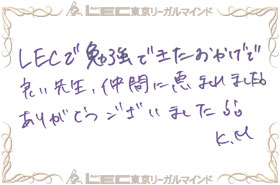 LEC東京リーガルマインド
LECで勉強できたおかげで
良い先生、仲間に恵まれました。
ありがとうございました!!
K.M
LEC東京リーガルマインド